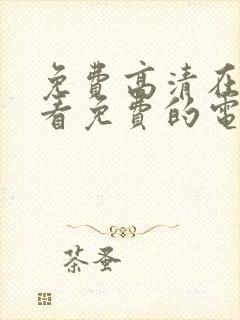 免費高清在
看免費的電
茶蚤